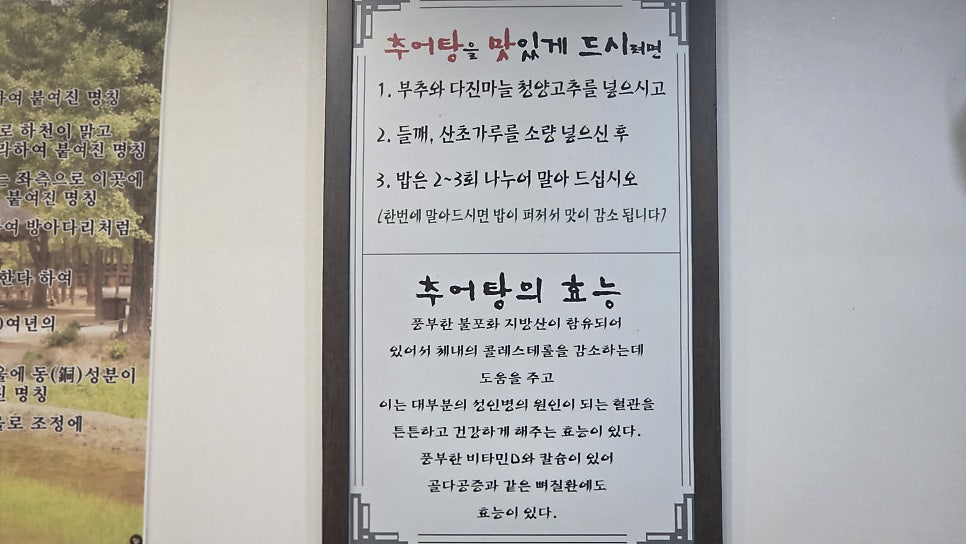 하여 붙여진 명칭
로 하천이 맑고
라하여 붙여진 명칭
는 좌측으로 이곳에
붙여진 명칭
하여 방아다리처럼
한다 하여
여년의
울에 동(銅)성분이
진 명칭
을로 조정에
추어탕을 맛있게 드시려면
1. 부추와 다진마늘 청양고추를 넣으시고
2. 들깨, 산초가루를 소량 넣으신 후
3. 밥은 2~3회 나누어 말아 드십시오
(한번에 말아드시면 밥이 퍼져서 맛이 감소 됩니다)
추어탕의 효능
풍부한 불포화 지방산이 함유되어
있어서 체내의 콜레스테롤을 감소하는데
도움을 주고
이는 대부분의 성인병의 원인이 되는 혈관을
튼튼하고 건강하게 해주는 효능이 있다.
풍부한 비타민D와 칼슘이 있어
골다공증과 같은 뼈질환에도
효능이 있다.